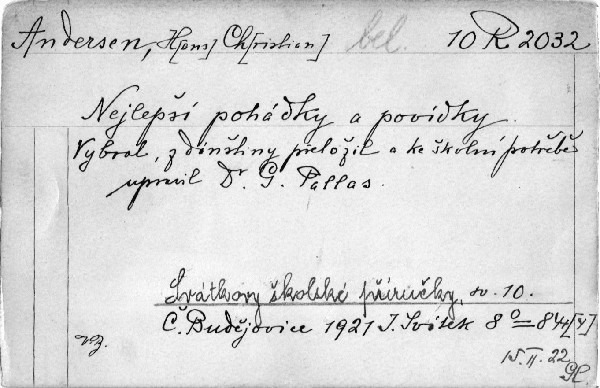 Andersen, H[ans] Ch[ristian] bel. 10 R 2032
Nejlepší pohádky a povídky.
Vybral, z dánštiny přeložil a ke školní potřebě
upravil Dr. G. Pallas.
Svátkovy školské příručky, sv. 10.
Č. Budějovice 1921 J. Svátek 8° = 84 [4]
15. II. 22